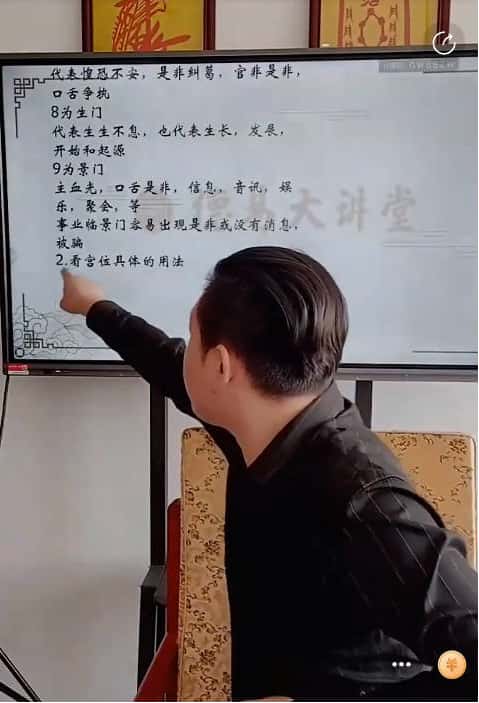 代表惶恐不安，是非糾葛，官非是非，
口舌争执
8为生门
代表生生不息，也代表生长，发展，
开始和起源
9为景门
主血光，口舌是非，信息，音讯，娱
乐，聚会，等
事业临景门容易出现是非或没有消息，
被骗
2.看宫位具体的用法
易大讲堂